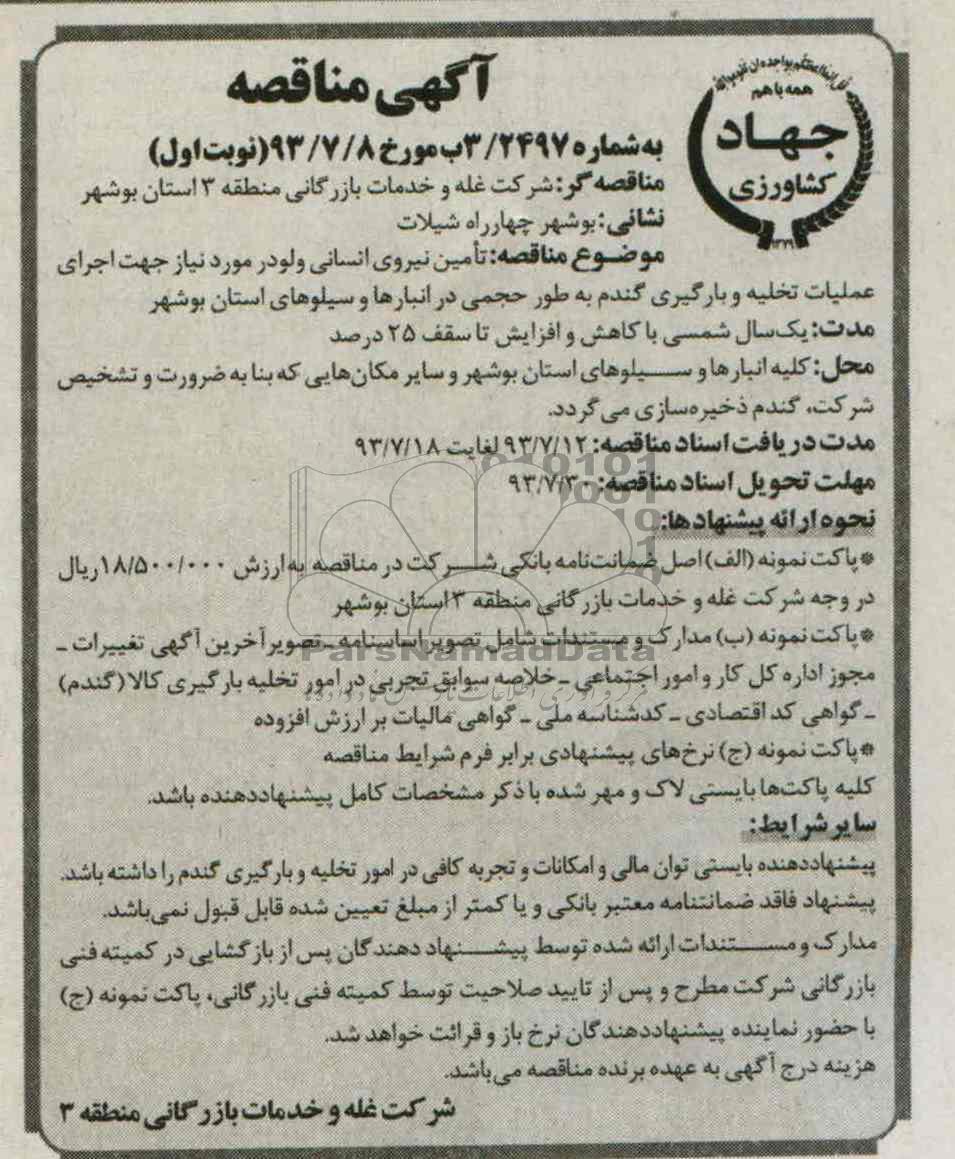 آگهی مناقصه
همه با هم
جهاد
کشاورزی
۱۳۷۹
به شماره ۳/۲۴۹۷ب مورخ ۹۳/۷/۸ (نوبت اول)
مناقصه گر: شرکت غله و خدمات بازرگانی منطقه ۳ استان بوشهر
نشانی: بوشهر چهارراه شیلات
موضوع مناقصه: تأمین نیروی انسانی ولودر مورد نیاز جهت اجرای
عملیات تخلیه و بارگیری گندم به طور حجمی در انبارها و سیلوهای استان بوشهر
مدت: یک‌سال شمسی با کاهش و افزایش تا سقف ۲۵ درصد
محل: کلیه انبارها و سیلوهای استان بوشهر و سایر مکان‌هایی که بنا به ضرورت و تشخیص
شرکت، گندم ذخیره‌سازی می‌گردد.
مدت دریافت اسناد مناقصه: ۹۳/۷/۱۲ لغایت ۹۳/۷/۱۸
مهلت تحویل اسناد مناقصه: ۹۳/۷/۳۰
نحوه ارائه پیشنهادها:
*پاکت نمونه (الف) اصل ضمانت‌نامه بانکی شرکت در مناقصه به ارزش ۱۸/۵۰۰/۰۰۰ریال
در وجه شرکت غله و خدمات بازرگانی منطقه ۳ استان بوشهر
*پاکت نمونه (ب) مدارک و مستندات شامل تصویر اساسنامه ـ تصویر آخرین آگهی تغییرات ـ
ParsNamadData
مجوز اداره کل کار و امور اجتماعی ـ خلاصه سوابق تجربی در امور تخلیه بارگیری کالا (گندم)
ـ گواهی کد اقتصادی ـ کدشناسه ملی ـ گواهی مالیات بر ارزش افزوده
*پاکت نمونه (ج) نرخ‌های پیشنهادی برابر فرم شرایط مناقصه
کلیه پاکت‌ها بایستی لاک و مهر شده با ذکر مشخصات کامل پیشنهاددهنده باشد.
سایر شرایط:
پیشنهاددهنده بایستی توان مالی و امکانات و تجربه کافی در امور تخلیه و بارگیری گندم را داشته باشد.
پیشنهاد فاقد ضمانتنامه معتبر بانکی و یا کمتر از مبلغ تعیین شده قابل قبول نمی‌باشد.
مدارک و مستندات ارائه شده توسط پیشنهاد دهندگان پس از بازگشایی در کمیته فنی
بازرگانی شرکت مطرح و پس از تایید صلاحیت توسط کمیته فنی بازرگانی، پاکت نمونه (ج)
با حضور نماینده پیشنهاددهندگان نرخ باز و قرائت خواهد شد.
هزینه درج آگهی به عهده برنده مناقصه می‌باشد.
شرکت غله و خدمات بازرگانی منطقه ۳